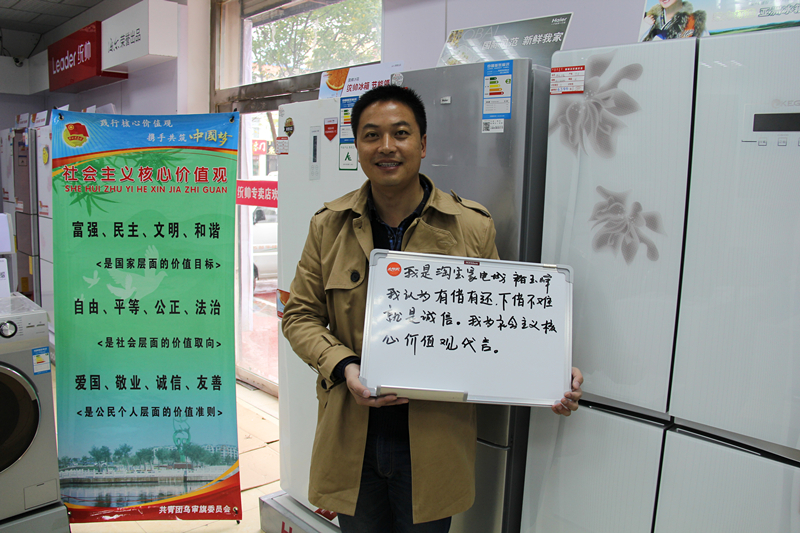 Leader 统帅
荣誉出品
践行核心价值观
携手共筑中国梦
社会主义核心价值观
SHE HUI ZHU YI HE XIN JIA ZHI GUAN
富强、民主、文明、和谐
<是国家层面的价值目标>
自由、平等、公正、法治
<是社会层面的价值取向>
爱国、敬业、诚信、友善
<是公民个人层面的价值准则>
共青团乌审旗委员会
统帅冰箱 节能
统帅专卖店欢
Haier
新鲜我家
我是淘宝家电城
我认为有借有还,下借不难
就是诚信。我为社会主义核
心价值观代言。